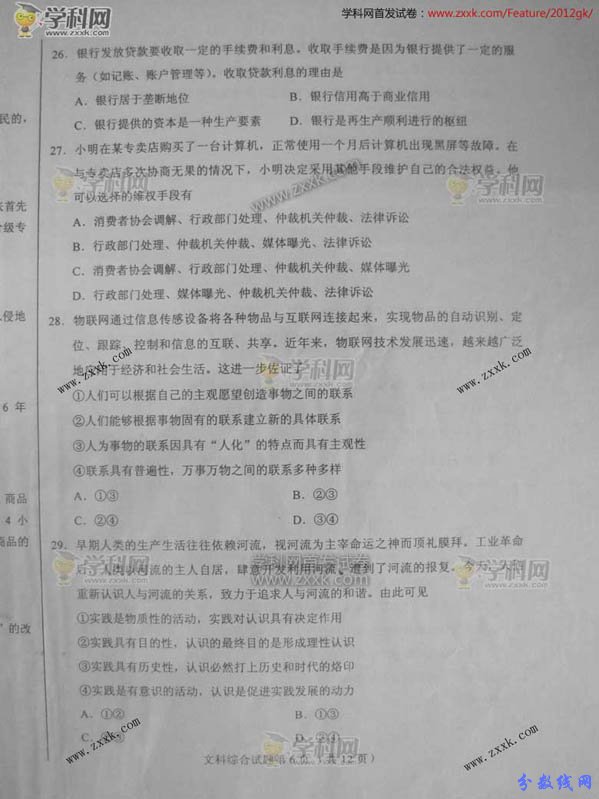 学科网首发试卷：www.zxxk.com/Feature/2012gk/
26．银行发放贷款要收取一定的手续费和利息。收取手续费是因为银行提供了一定的服
务（如记账、账户管理等）。收取贷款利息的理由是
A．银行居于垄断地位 B．银行信用高于商业信用
C．银行提供的资本是一种生产要素 D．银行是再生产顺利进行的枢纽
民的，
27．小明在某专卖店购买了一台计算机，正常使用一个月后计算机出现黑屏等故障。在
与专卖店多次协商无果的情况下，小明决定采用其他手段维护自己的合法权益。他
可以选择的维权手段有
首先
级专
A．消费者协会调解、行政部门处理、仲裁机关仲裁、法律诉讼
B．行政部门处理、仲裁机关仲裁、媒体曝光、法律诉讼
C．消费者协会调解、行政部门处理、仲裁机关仲裁、媒体曝光
D．行政部门处理、媒体曝光、仲裁机关仲裁、法律诉讼
侵地
28．物联网通过信息传感设备将各种物品与互联网连接起来，实现物品的自动识别、定
位、跟踪、控制和信息的互联、共享。近年来，物联网技术发展迅速，越来越广泛
地应用于经济和社会生活。这进一步佐证了
①人们可以根据自己的主观愿望创造事物之间的联系
6 年
②人们能够根据事物固有的联系建立新的具体联系
③人为事物的联系因具有“人化”的特点而具有主观性
④联系具有普遍性，万事万物之间的联系多种多样
商品
A．①③ B．②③
4 小
C．②④ D．③④
商品的
29．早期人类的生产生活往往依赖河流，视河流为主宰命运之神而顶礼膜拜。工业革命
后，人类以河流的主人自居，肆意开发利用河流，遭到了河流的报复。今天，人们
重新认识人与河流的关系，致力于追求人与河流的和谐。由此可见
”的改
①实践是物质性的活动，实践对认识具有决定作用
②实践具有目的性，认识的最终目的是形成理性认识
③实践具有历史性，认识必然打上历史和时代的烙印
④实践是有意识的活动，认识是促进实践发展的动力
A．①② B．①③
C．②③ D．②④
文科综合试题第 6 页（共 12 页）
学科网
www.zxxk.com
学科网首发试卷
www.zxxk.com
分数线网